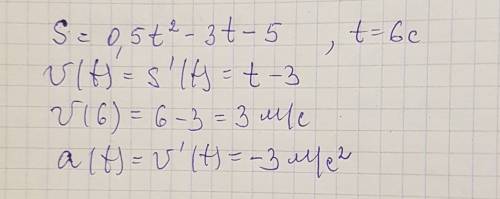 S = 0,5t² - 3t - 5 , t = 6c
v(t) = s'(t) = t - 3
v(6) = 6 - 3 = 3 м/с
a(t) = v'(t) = -3 м/с²